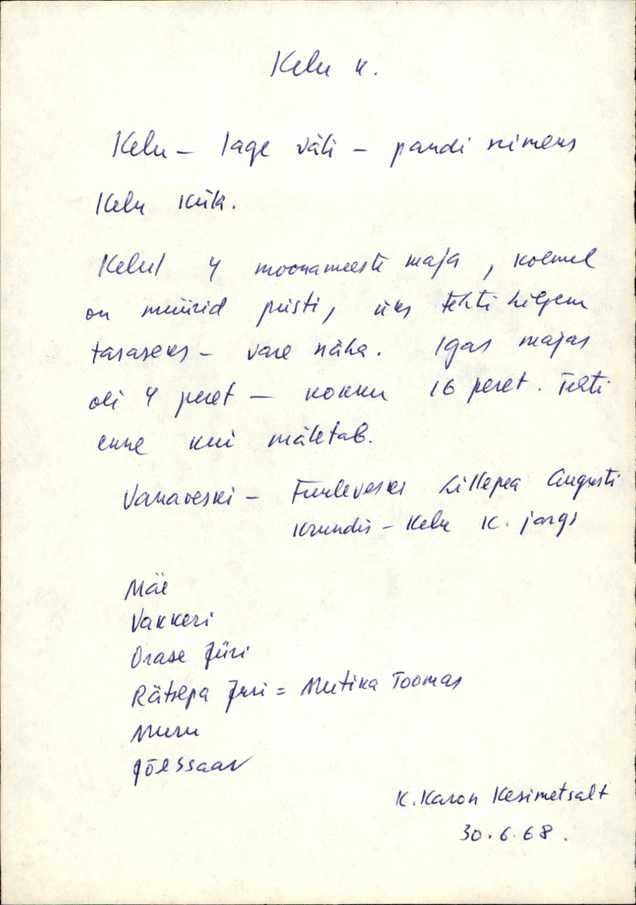 Kelu k.
Kelu – lage väli – pandi nimeks
Kelu küla.
Kelul 4 moonameeste maja, kolmel
on müürid püsti, üks tehti hiljem
tasaseks – vare näha. Igas majas
oli 4 peret – kokku 16 peret. Tehti
enne kui mäletab.
Vanaveski – Tuuleveski Lillepea Augusti
krundis – Kelu k. järgi
Mäe
Vakkeri
Orase Jüri
Rätsepa Juri = Mutika Toomas
Muru
Jõessaar
K. Karon Kesimetsalt
30.6.68.